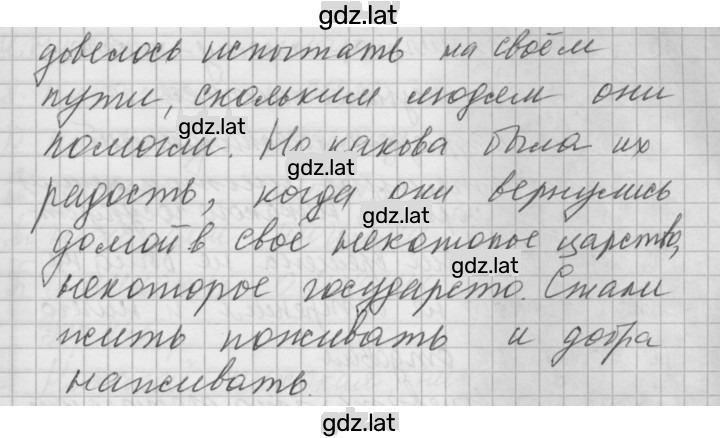 gdz.lat
довелось испытать на своём
пути, скольким людям они
gdz.lat
помогли. Но какова была их
gdz.lat
радость, когда они вернулись
gdz.lat
домой в своё некоторое царство,
gdz.lat
некоторое государсто. Стали
жить поживать и добра
наживать.
gdz.lat